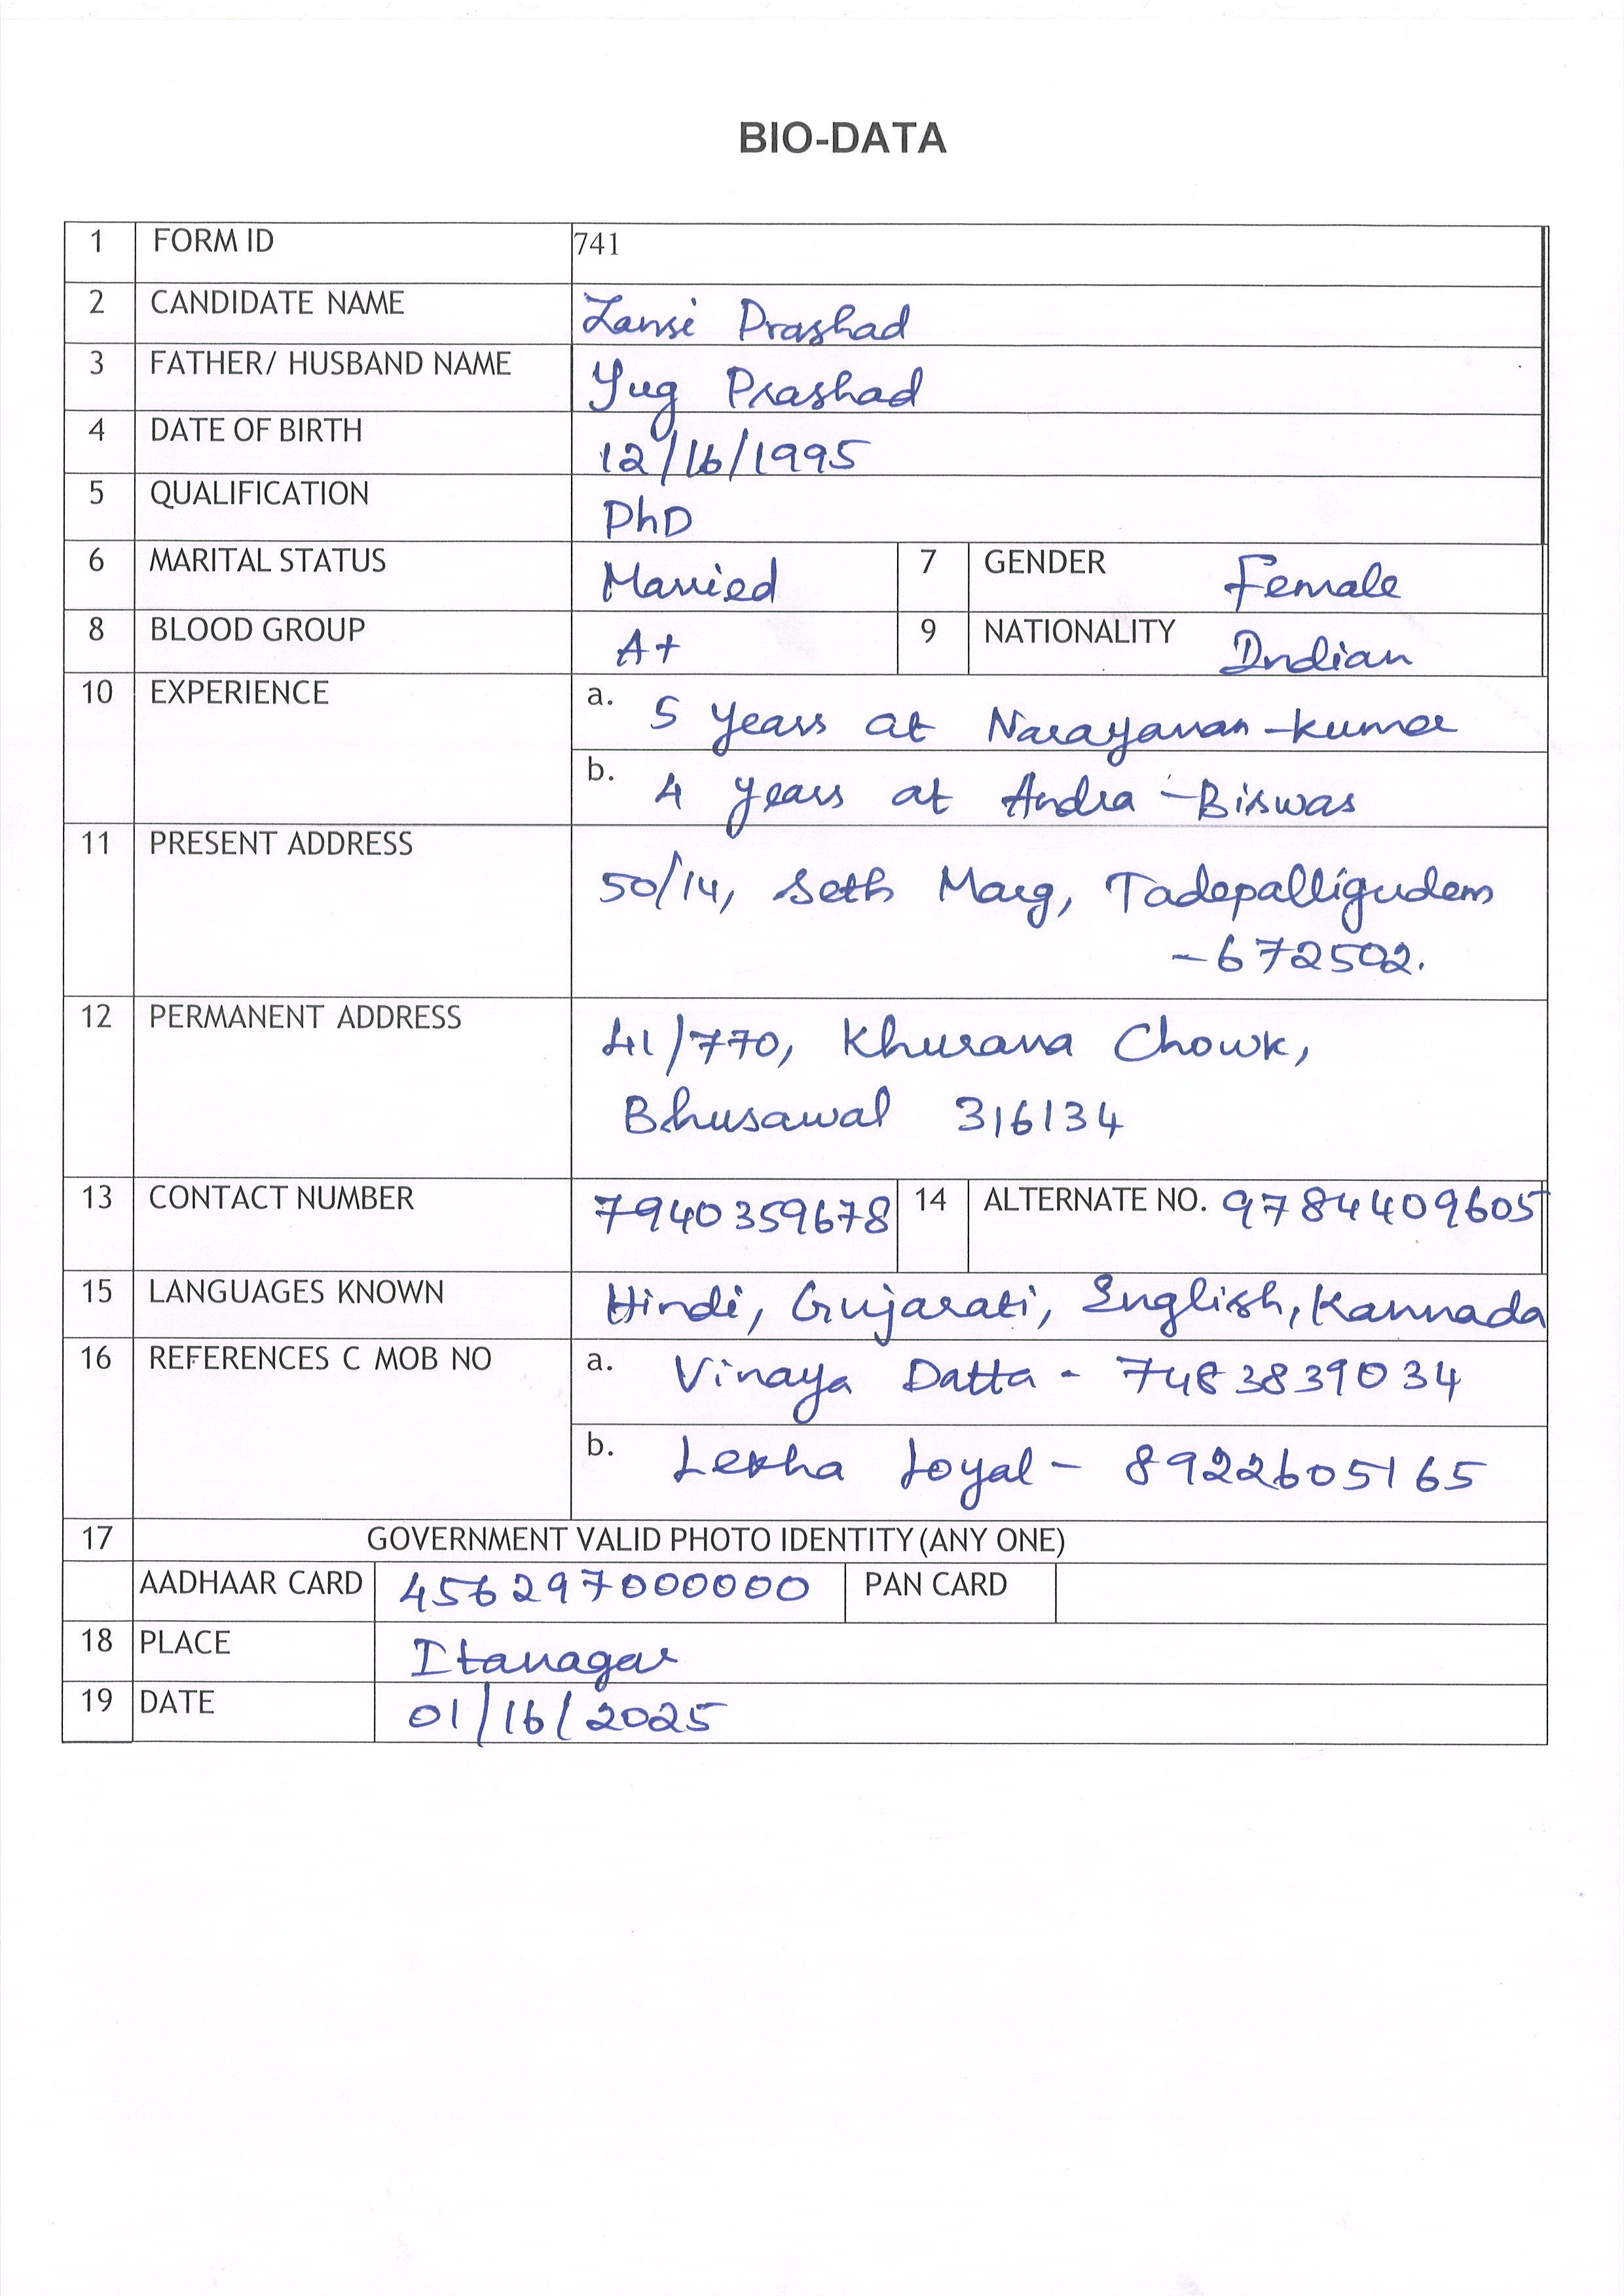 BIO-DATA
1 FORM ID 741
2 CANDIDATE NAME Zansi Prashad
3 FATHER/ HUSBAND NAME Yug Prashad
4 DATE OF BIRTH 12/16/1995
5 QUALIFICATION PhD
6 MARITAL STATUS Married 7 GENDER Female
8 BLOOD GROUP A+ 9 NATIONALITY Indian
10 EXPERIENCE a. 5 years at Narayanan-kumar
b. 4 years at Andra-Biswas
11 PRESENT ADDRESS 50/14, Seth Marg, Tadepalligudem
-672502.
12 PERMANENT ADDRESS 41/770, Khurana Chowk,
Bhusawal 316134
13 CONTACT NUMBER 7940359678 14 ALTERNATE NO. 9784409605
15 LANGUAGES KNOWN Hindi, Gujarati, English, Kannada
16 REFERENCES C MOB NO a. Vinaya Datta - 7483839034
b. Lekha Loyal - 8922605165
17 GOVERNMENT VALID PHOTO IDENTITY (ANY ONE)
AADHAAR CARD 456297000000 PAN CARD
18 PLACE Itanagar
19 DATE 01/16/2025